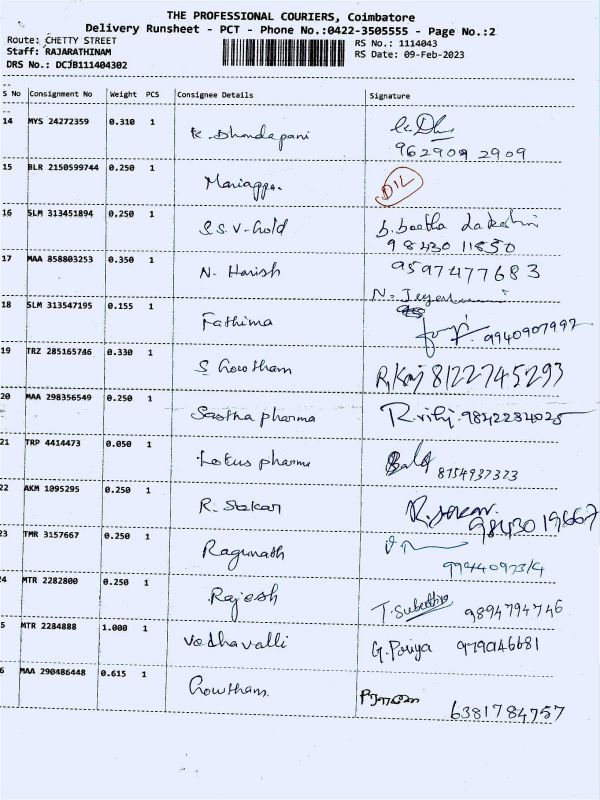 THE PROFESSIONAL COURIERS, Coimbatore
Delivery Runsheet - PCT - Phone No.:0422-3505555 - Page No.:2
Route: CHETTY STREET
RS No.: 1114043
Staff: RAJARATHINAM
RS Date: 09-Feb-2023
DRS No.: DCJB111404302
S No Consignment No Weight PCS Consignee Details Signature
14 MYS 24272359 0.310 1 K. Dhandapani
962909 2909
15 BLR 2150599744 0.250 1 Mariappa. DIL
16 SLM 313451894 0.250 1 S.S.V-Gold
98430 11850
17 MAA 858803253 0.350 1 N. Harish 9597477683
18 SLM 313547195 0.155 1 Fathima 9940907992
19 TRZ 285165746 0.330 1 S Gowtham 8122745293
20 MAA 298356549 0.250 1 Sastha pharma 9842234025
21 TRP 4414473 0.050 1 Lotus pharma 8754937373
22 AKM 1095295 0.250 1 R. Sekar R. Sekar.
9843019667
23 TMR 3157667 0.250 1 Ragunath
24 MTR 2282800 0.250 1 Rajesh 9894794746
5 MTR 2284888 1.000 1 Vedhavalli G. Poriya 979046681
6 MAA 290486448 0.615 1 Gowtham. 6381784757